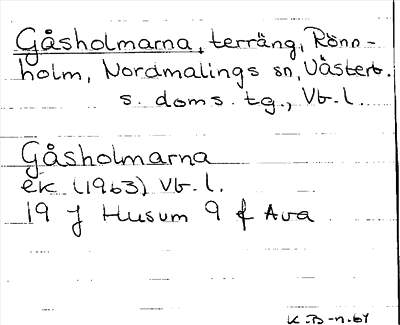 Gåsholmarna, terräng, Rönn-
holm, Nordmalings sn, Västerb.
s. doms. tg., Vb. l.
Gåsholmarna
ek (1963) Vb. l.
19 J Husum 9 f Ava
K.B-n. 67